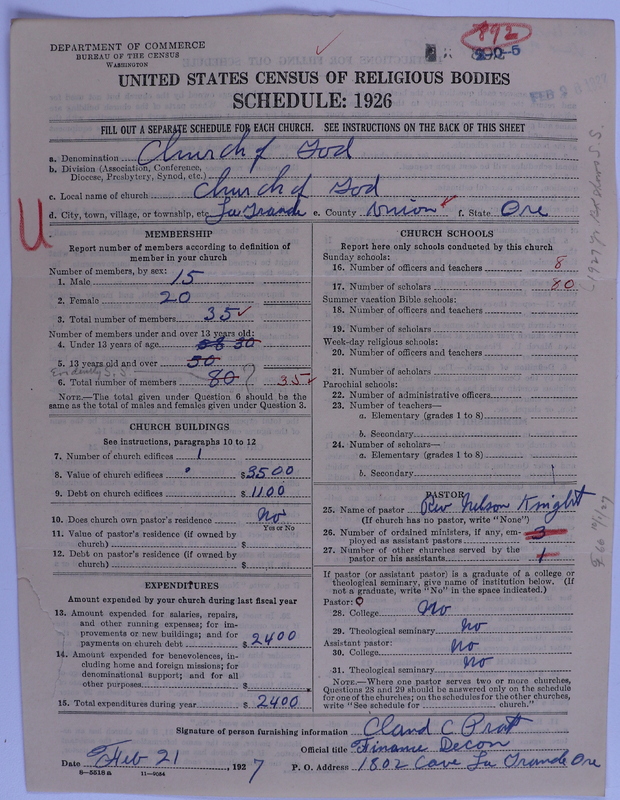 892
590-5
DEPARTMENT OF COMMERCE
BUREAU OF THE CENSUS
WASHINGTON
UNITED STATES CENSUS OF RELIGIOUS BODIES
SCHEDULE: 1926
FILL OUT A SEPARATE SCHEDULE FOR EACH CHURCH. SEE INSTRUCTIONS ON THE BACK OF THIS SHEET
a. Denomination Church of God
b. Division (Association, Conference,
Diocese, Presbytery, Synod, etc.)
c. Local name of church Church of God
d. City, town, village, or township, etc La Grande e. County Union f. State Ore
U
MEMBERSHIP
Report number of members according to definition of
member in your church
Number of members, by sex:
1. Male 15
2. Female 20
3. Total number of members 35
Number of members under and over 13 years old:
4. Under 13 years of age 30
5. 13 years old and over 50
Evidently S. S.
6. Total number of members 80 ? 35
NOTE.—The total given under Question 6 should be
same as the total of males and females given under Question 3.
CHURCH BUILDINGS
See instructions, paragraphs 10 to 12
7. Number of church edifices 1
8. Value of church edifices $3500
9. Debt on church edifices $1100
10. Does church own pastor's residence No
Yes or No
11. Value of pastor's residence (if owned by
church) $
12. Debt on pastor's residence (if owned by
church) $
EXPENDITURES
Amount expended by your church during last fiscal year
13. Amount expended for salaries, repairs,
and other running expenses; for im-
provements or new buildings; and for
payments on church debt $2400
14. Amount expended for benevolences, in-
cluding home and foreign missions; for
denominational support; and for all
other purposes $
15. Total expenditures during year $2400
CHURCH SCHOOLS
Report here only schools conducted by this church
Sunday schools:
16. Number of officers and teachers 8
17. Number of scholars 80
Summer vacation Bible schools:
18. Number of officers and teachers
19. Number of scholars
Week-day religious schools:
20. Number of officers and teachers
21. Number of scholars
Parochial schools:
22. Number of administrative officers
23. Number of teachers—
a. Elementary (grades 1 to 8)
b. Secondary
24. Number of scholars—
a. Elementary (grades 1 to 8)
b. Secondary
PASTOR
25. Name of pastor Rev Nelson Knight
(If church has no pastor, write "None")
26. Number of ordained ministers, if any, em-
ployed as assistant pastors 3
27. Number of other churches served by the
pastor or his assistants 1
If pastor (or assistant pastor) is a graduate of a college or
theological seminary, give name of institution below. (If
not a graduate, write "No" in the space indicated.)
Pastor:
28. College No
29. Theological seminary No
Assistant pastor:
30. College No
31. Theological seminary No
NOTE.—Where one pastor serves two or more churches,
Questions 28 and 29 should be answered only on the schedule
for one of the churches; on the schedules for the other churches,
write "See schedule for church."
Signature of person furnishing information Claud C Pratt
Official title Finance Decon
Date Feb 21, 1927 P. O. Address 1802 Cove La Grande Ore
8—5518a 11—9034